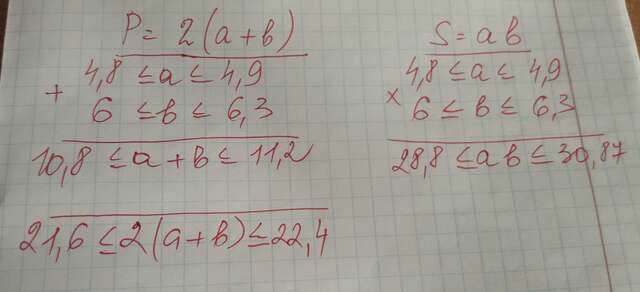 P = 2(a+b)
4,8 ≤ a ≤ 4,9
+
6 ≤ b ≤ 6,3
10,8 ≤ a + b ≤ 11,2
21,6 ≤ 2(a+b) ≤ 22,4
S = ab
4,8 ≤ a ≤ 4,9
×
6 ≤ b ≤ 6,3
28,8 ≤ ab ≤ 30,87